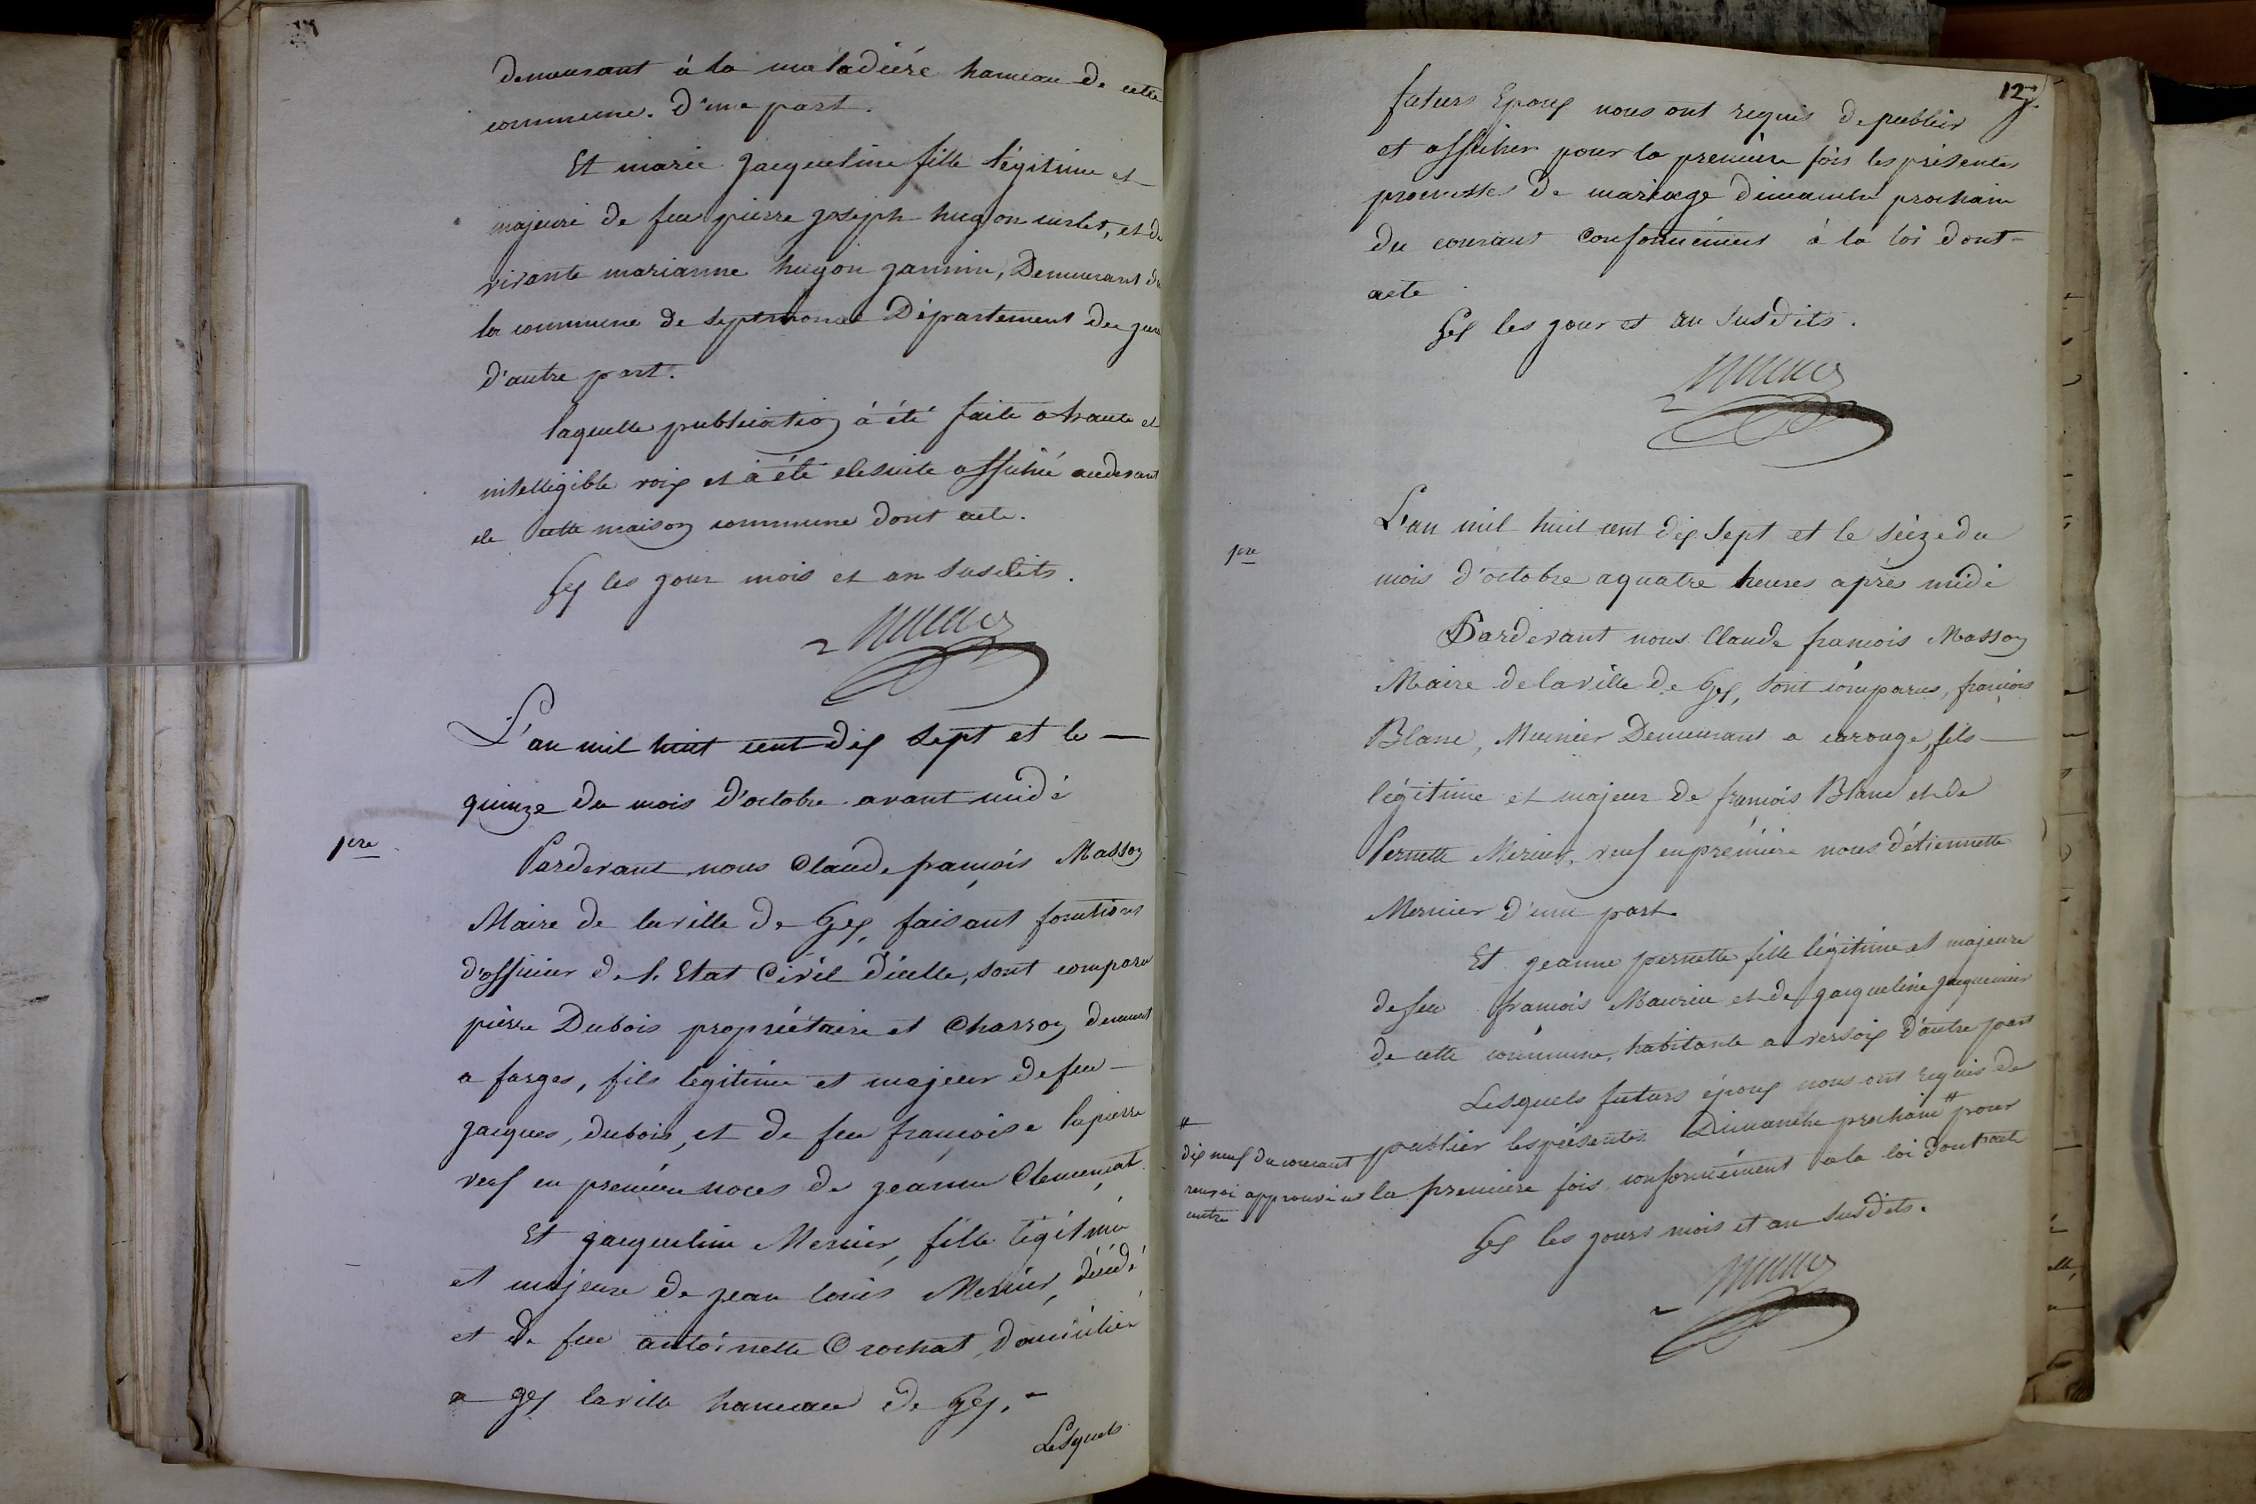 demeurant à la maladiére hameau de cette
commune. D'une part.
Et marie Jacqueline fille légitime et
majeure de feu pierre joseph hugon et de
vivante marianne hugon jannin, Demeurant de
la commune de Septmoncel Département du jura
d'autre part.
laquelle publication à été faite a haute et
intelligible voix et à été desuite affiché audevant
de cette maison commune dont acte.
Gex les jour mois et an susdits.
L'an mil huit cent dix sept et le
quinze du mois d'octobre avant midi
1ere
Pardevant nous Claude françois Masson
Maire de la ville de Gex, faisant fonctions
d'officier de l'Etat Civil d'icelle, sont comparu
pierre Dubois propriétaire et Charron demeurant
a farges, fils legitime et majeur de feu
jacques, dubois, et de feu françoise lapierre
veuf en première noces de jeanne
Et jacqueline Mercier, fille légitime
et majeure de jean louis Mercier, décédé
et de feu antoinette Crochat, domiciliée
a gex la ville hameau de Gex.
Lesquels
127.
futurs Epoux nous ont requis de publier
et afficher pour la première fois les présentes
promesses de mariage dimanche prochain
du courant conformément à la loi dont
acte
Gex les jour et an susdits.
L'an mil huit cent dix sept et le seize du
1ere
mois d'octobre a quatre heures après midi
Pardevant nous Claude françois Masson
Maire de la ville de Gex, sont comparus, françois
Blanc, Meunier Demeurant a carouge, fils
légitime et majeur de françois Blanc et de
Pernette Mercier, veuf en première noces d'étiennette
Mercier d'une part.
Et jeanne pernette fille légitime et majeure
de feu françois Maurier et de jacqueline jacquemier
de cette commune, habitante a versoix d'autre part
Lesquels futurs époux nous ont requis de
publier les présentes Dimanche prochain # pour
la première fois conformément a la loi dont acte
#
dix neuf du courant
renvoi approuvé
Gex les jours mois et an susdits.